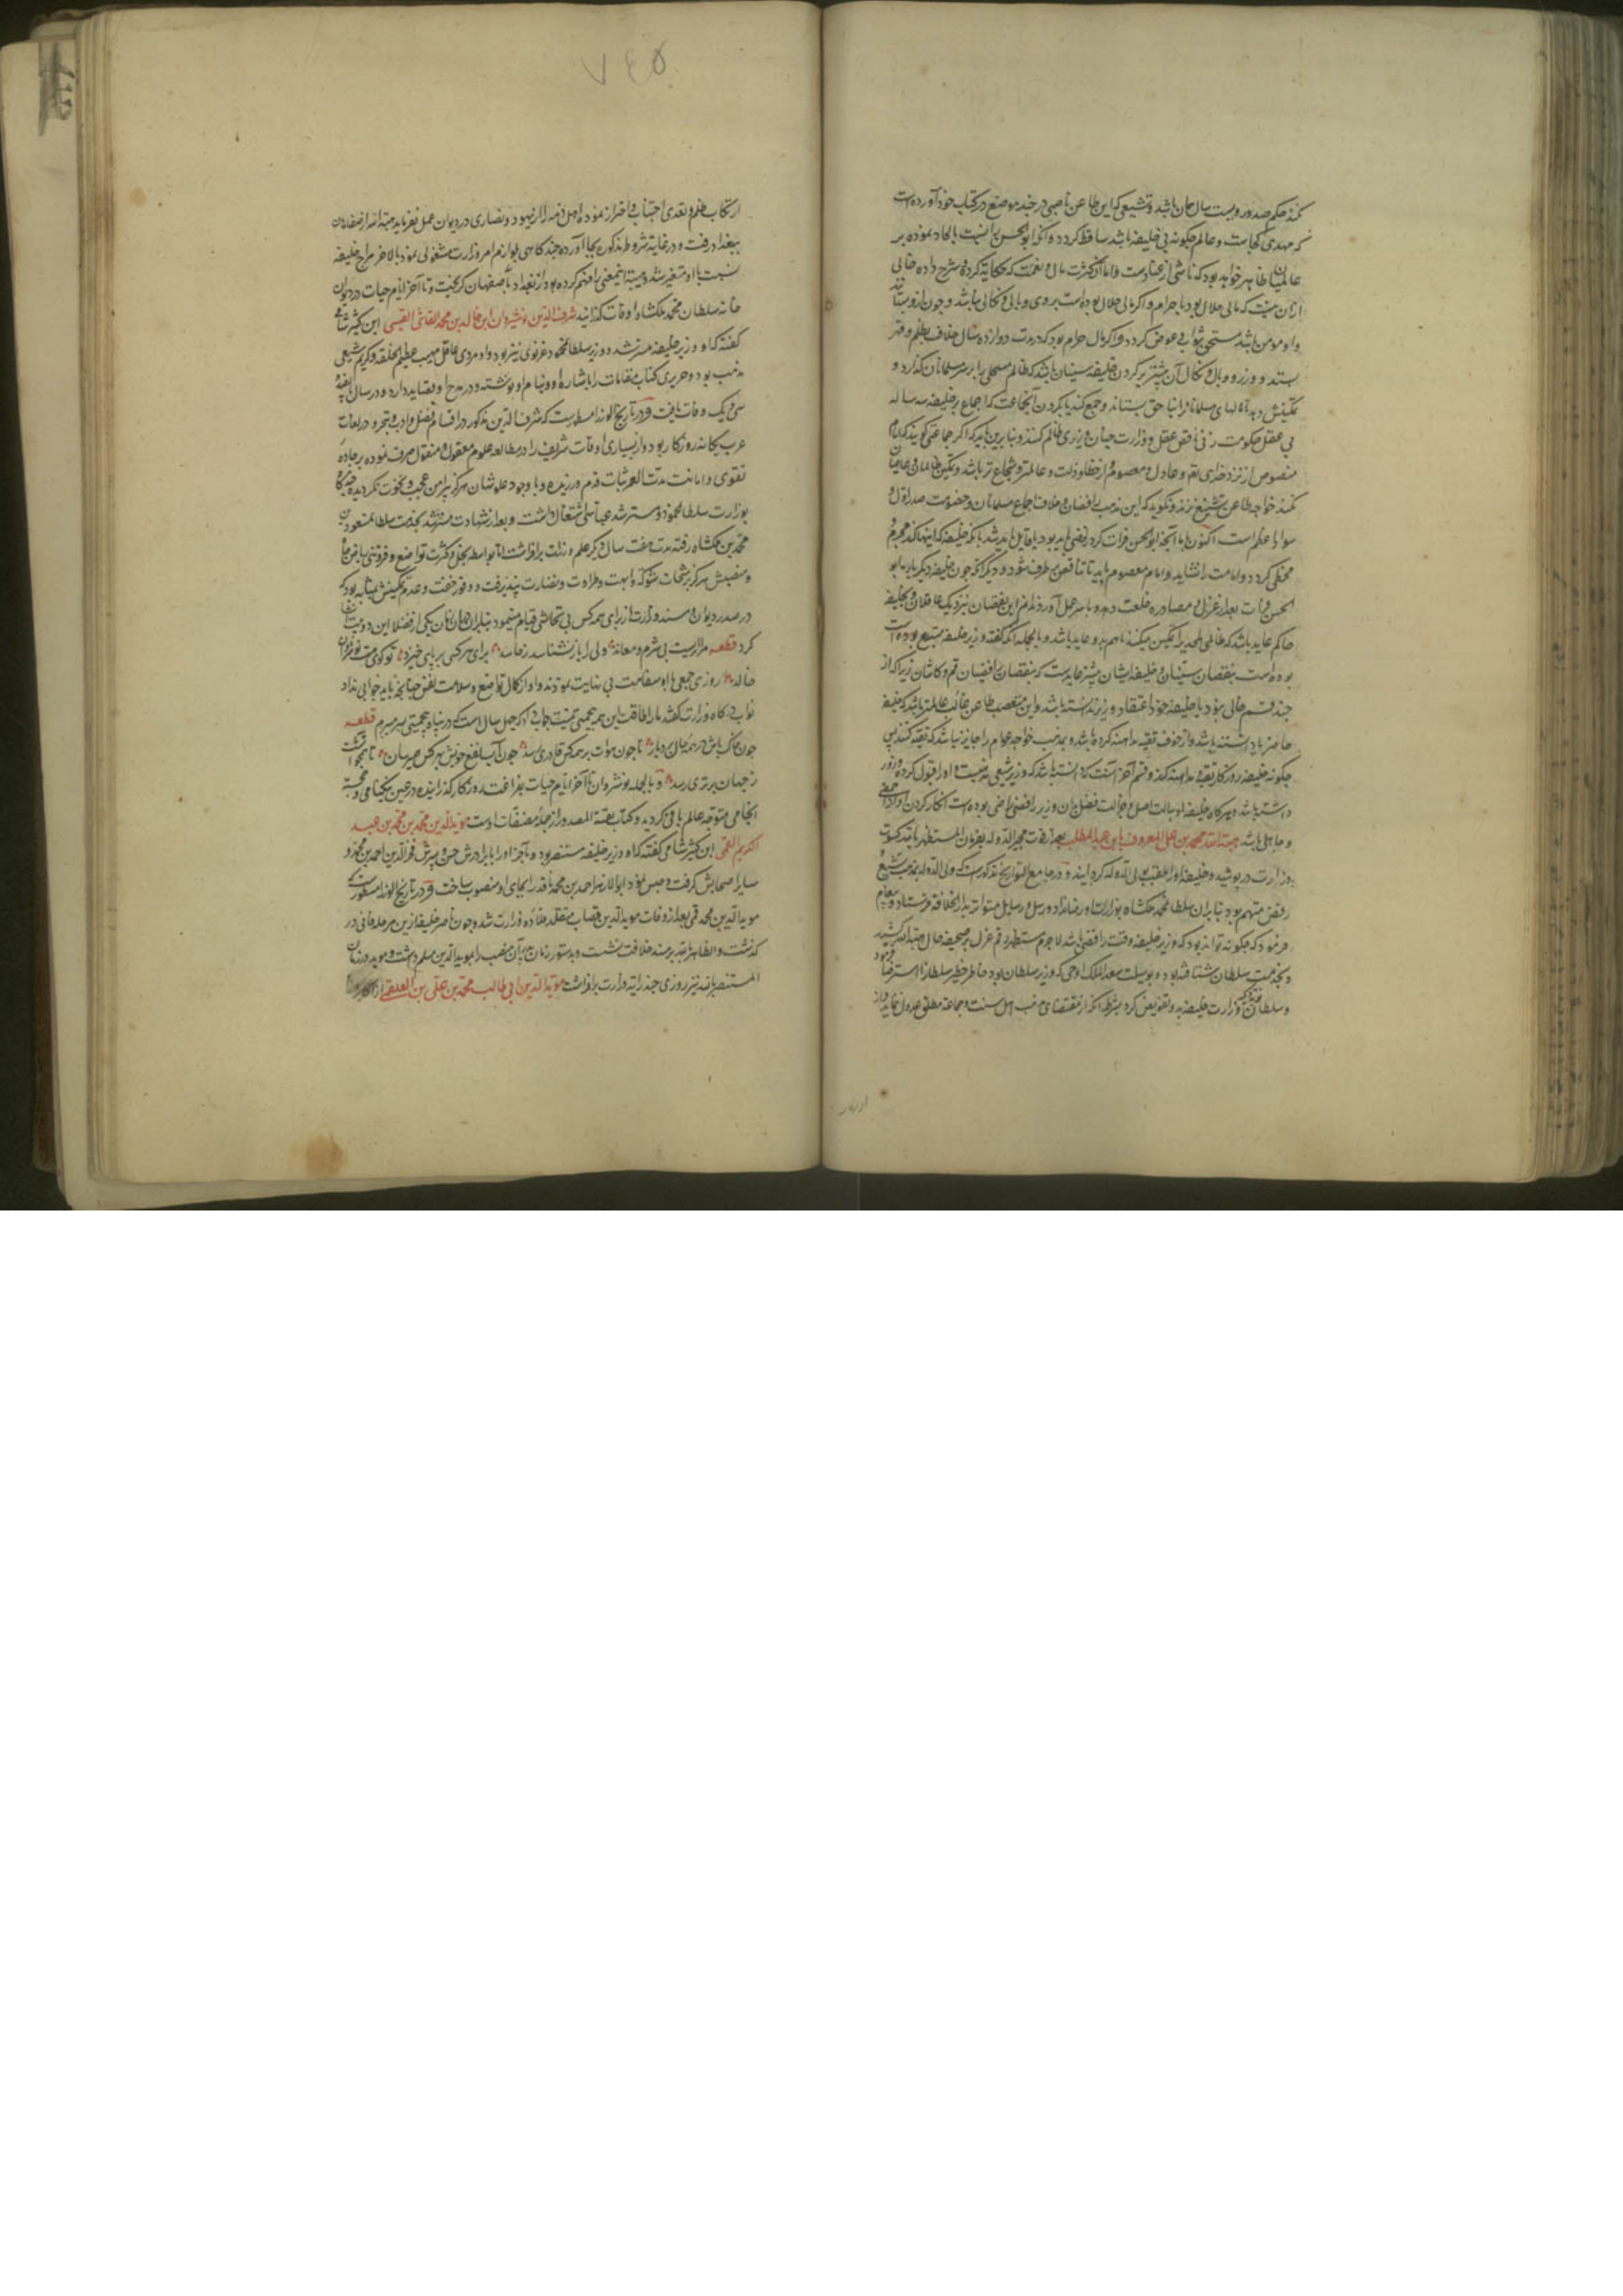 که مهدی کجاست و عالم چگونه بی خلیفه باشد ساقط کردد و انکه ابو الحسن را نسبت بالحاد نموده بر
عالمیان ظاهر خواهد بود که ناشی از عناد است و اما آن کثرت مال و نعمت که حکایة کرده و شرح داده خالی
ازان نیست که مالی حلال بود یا حرام و اکر مالی حلال بوده است بر وی وبالی و نکالی نباشد و چون ازو بستانند
و او مومن باشد مستحق ثواب و عوض کردد و اکر مال حرام بود که در مدت دوازده سال خلاف بظلم و قهر
بستد و وزر و وبال و نکال آن بیشتر بر کردن خلیفه سنیان باشد که ظالم مستحلی را بر سر مسلمانان کذارد و
تمکینش دهد تا مالهای مسلمانان را بنا حق بستاند و جمع کند یا بکردن آن جماعت که اجماع بر خلیفه سه ساله
بی عقل حکومت زنی ناقص عقل و وزارت چنان وزیری ظالم کنند و بنا برین باید که اکر جماعتی کویند که امام
منصوص از نزد خدای اقر و عادل و معصوم از خطا و زلت و عالمتر و شجاع تر باشد و تمکین ظالمان و عاصیان
نکند خواجه طاعن تشنیع نزند و نکوید که این مذهب رافضیان و خلاف اجماع مسلمانان و خصومت صدر اول و
سواد اعظم است اکنون اما آنچه ابو الحسن فرات کرد رفضی باید بود یا قایل باید شد بانکه خلیفه که اینها کند مجرم و
مخطی کردد و امامت را نشاید و امام معصوم باید تا تناقض بر طرف شود و دیکر انکه چون خلیفه دیکر بار بابو
الحسن فرات بعد از عزل و مصادره خلعت دهد و با سر عمل آورد ندانم این نقصان نزدیک عاقلان و بخلیفه
حاکم عاید باشد که ظالمی ملحد را تمکین میکند یا هم بدو عاید باشد و بالجمله انکه کفته وزیر خلیفه متشیع بوده است
بوده است بنقصان سنیان و خلیفه ایشان بیشتر عاید است که بنقصان رافضیان قم و کاشان زیرا که از
چند قسم خالی نبود یا خلیفه خود اعتقاد وزیر ندانسته باشد و این متعصب طاعن غائب عالمتر باشد که خلیفه
حاضر یا دانسته باشد و از خوف تقیه و مداهنه کرده باشد و بمذهب خواجه عوام را جایز نباشد که تقیه کنند پس
چکونه خلیفه روزکار تقیه و مداهنه کند و قسم آخر آنست که دانسته باشد که وزیر شیعی مذهبست و او را قبول کرده و وزور
داشته باشد و هر کاه خلیفه او بدلالت اصل و جوالت فضل بان وزیر رافضی راضی بوده است انکار کردن
و جاهلی باشد هبة الله محمد بن علی المعروف بابن عبد المطلب بعد از وفات مجیر الدوله بفرمان المستظهر بالله کسوت
وزارت در پوشید و خلیفه او را ملقب بولی الدوله کردانید و در جامع التواریخ مذکور است که ولی الدوله بمذهب تشیع و
رفض متهم بود بنا بران سلطان محمد ملکشاه بوزارت او رضا نداد و رسل و رسایل متواتر بدار الخلافه فرستاد و پیغام
فرمود که چکونه تواند بود که وزیر خلیفه وقت رافضی باشد لا جرم مستظهر رقم عزل بر صحیفه حال هبة الله کشید
و بخدمت سلطان شتافته بود و بوسیلت سعد الملک اوجی که وزیر سلطان بود خاطر خطیر سلطان را استرضا فرمود
و سلطان وزارت خلیفه بدو تفویض کرد بشرط انکه از مقتضای مذهب اهل سنت و جماعة مطلق عدول ننماید و از
از زبان
۷٤۵
ارتکاب ظلم و تعدی اجتناب و احتراز نموده اهل ذمه را از یهود و نصاری در دیوان عمل نفرماید هبة الله از اصفهان
ببغداد رفت و در غایة شروط مذکوره بجا آورده چند کاهی بلوازم امر وزارت مشغولی نمود بالاخر مزاج خلیفه
نسبت باو متغیر شد و هبة الله این معنی را فهم کرده بود از بغداد باصفهان کریخت و تا آخر ایام حیات در دیوان
خانه سلطان محمد ملکشاه اوقات کذرانید شرف الدین نوشیروان ابن خالد بن محمد القاشی القیسی ابن کثیر شامی
کفته که او وزیر خلیفه مسترشد و وزیر سلطان محمود غزنوی نیز بود و او مردی عاقل مهیب عظیم الخلقه و کریم شیعی
مذهب بود و حریری کتاب مقامات را باشاره او و بنام او نوشته و در مدح او قصاید دارد و در سال پانصد و
سی و یک وفات یافت و در تاریخ الوزرا مسطور است که شرف الدین مذکور در اقسام فضل و ادب و تبحر در لغات
عرب یکانه روزکار بود و از بسیاری اوقات شریف را در مطالعه علوم معقول و منقول صرف نموده بر جادهٔ
تقوی و امانت مدت العمر ثبات قدم ورزید و با وجود علو شان هرکز پیرامن عجب و نخوت نکردیده چند کاه
بوزارت سلطان محمود و مسترشد عباسی اشتغال داشت و بعد از شهادت مسترشد بخدمت سلطان مسعود بن
محمد بن ملکشاه رفته مدت هفت سال دیکر علم وزارت بر افراشت اما بواسطه بخل و کثرت تواضع و فروتنی ریاض جاه
و منصبش هرکز برشحات شوکة و ابهت طراوت و نضارت نپذیرفت و وفور خفت و عدم تمکینش بمثابه بود که
در صدر دیوان و مسند وزارت از برای همه کس بی تحاشی قیام مینمود بنابران در ان زمان یکی از فضلا این دو بیت نظم
کرد قطعه
خاله روزی جمعی باو سفاهت بی نهایت نمودند و او از کمال تواضع و سلامت نفس چنانچه باید جوابی نداد
نواب درکاه وزارت کفتند ما را طاقت این همه بی حمیتی نیست جواب داد که چهل سال است که در پناه بی حمیتی بسر میبرم قطعه
چون خاک باش در همه حال بردبار تا چون هوات بر همه کس قادری رسد چون آب نفع خویش بهر کس همی رسان تا همچو آتشت
ز جهان برتری رسد و بالجمله نوشروان تا آخر ایام حیات بفراغت روزکار کذرانیده در عین نیکنامی و خجسته
انجامی متوجه عالم باقی کردید و کتاب نفثة المصدور از جمله مصنفات اوست مؤید الدین محمد بن محمد بن عبد
الکریم القمی ابن کثیر شامی کفته که او وزیر خلیفه مستنصر بود و آخر او را با برادرش حسن و پسرش فخر الدین احمد بن محمد و
سایر اصحابش کرفت و حبس نمود ابو الازهر احمد بن محمد ناقد را بجای او منصوب ساخت و در تاریخ الوزرا مسطور است که
موید الدین محمد قمی بعد از وفات موید الدین قصاب متقلد قلادهٔ وزارت شد و چون ناصر خلیفه ازین مرحله فانی در
کذشت و الظاهر بالله بر مسند خلافت نشست و بدستور زمان پدر آن منصب را بموید الدین مسلم داشت و موید در زمان
المستنصر بالله نیز روزی چند رایة وزارت بر افراشت موید الدین ابی طالب محمد بن علی بن العلقمی از اکابر